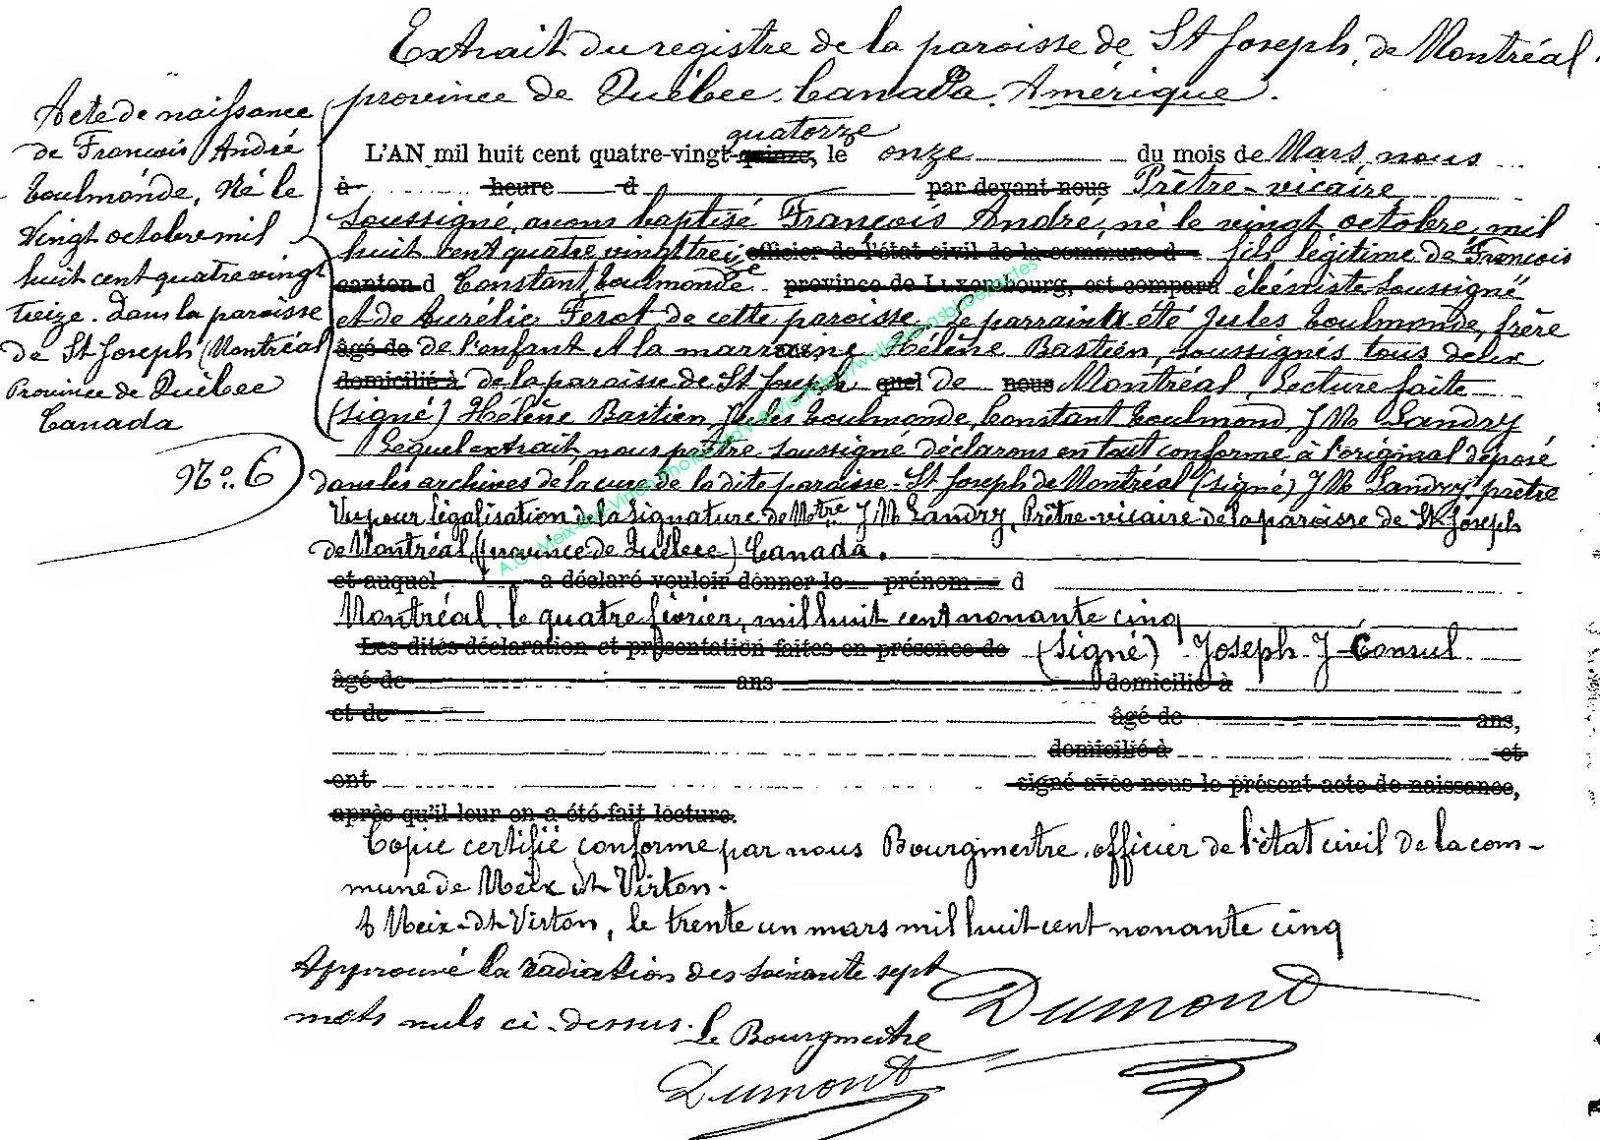 Extrait du registre de la paroisse de St Joseph, de Montréal.
province de Québec. Canada. Amérique.
Acte de naissance
de François André
Toulmonde, Né le
Vingt octobre mil
huit cent quatre vingt
treize. Dans la paroisse
de St Joseph (Montréal
Province de Québec
Canada
No. 6
quatorze
L'AN mil huit cent quatre-vingt-quinze, le onze du mois de Mars, nous
à heure d par devant nous Prêtre-vicaire
soussigné, avons baptisé François André, né le vingt octobre, mil
huit cent quatre vingt treize officier de l'état civil de la commune d fils légitime de François
canton d Constant Toulmonde province de Luxembourg, est comparu ébéniste soussigné
et de Aurélie Ferot de cette paroisse. Le parrain a été Jules Toulmonde, frère
âgé de de l'enfant et la marraine Hélène Bastien, soussignés tous deux
domicilié à de la paroisse de St Joseph quel de nous Montréal, Lecture faite
(signé) Hélène Bastien, Jules Toulmonde, Constant Toulmond, J M Landry
Lequel extrait, nous prêtre soussigné déclarons en tout conforme à l'original déposé
dans les archives de la cure de la dite paroisse - St Joseph de Montréal (signé) J M Landry prêtre
Vu pour légalisation de la signature de Mtre J M Landry, Prêtre-vicaire de la paroisse de St Joseph
de Montréal (province de Québec) Canada.
et auquel a déclaré vouloir donner le prénom d
Montréal, le quatre février, mil huit cent nonante cinq
Les dites déclaration et présentation faites en présence de (signé) Joseph J Consul
âgé de ans domicilié à
et de âgé de ans,
domicilié à et
ont signé avec nous le présent acte de naissance,
après qu'il leur en a été fait lecture.
Copie certifié conforme par nous Bourgmestre, officier de l'état civil de la com-
mune de Meix dt Virton.
à Meix-dt Virton, le trente un mars mil huit cent nonante cinq
Approuvé la radiation des soixante sept
mots nuls ci-dessus. Le Bourgmestre
Dumont
Dumont